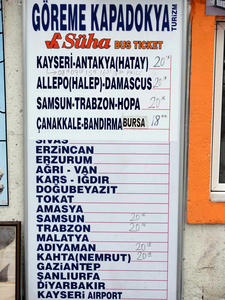 GÖREME KAPADOKYA
TURIZM
Süha BUS TICKET
KAYSERİ-ANTAKYA(HATAY) 20°°
ALLEPO(HALEP)-DAMASCUS 20°°
SAMSUN-TRABZON-HOPA 20°°
ÇANAKKALE-BANDIRMA BURSA 18°°
SİVAS
ERZİNCAN
ERZURUM
AĞRI - VAN
KARS - IĞDIR
DOĞUBEYAZIT
TOKAT
AMASYA
SAMSUN 20°°
TRABZON 20°°
MALATYA
ADIYAMAN 20°°
KAHTA(NEMRUT) 20°°
GAZİANTEP
ŞANLIURFA
DİYARBAKIR
KAYSERİ AIRPORT